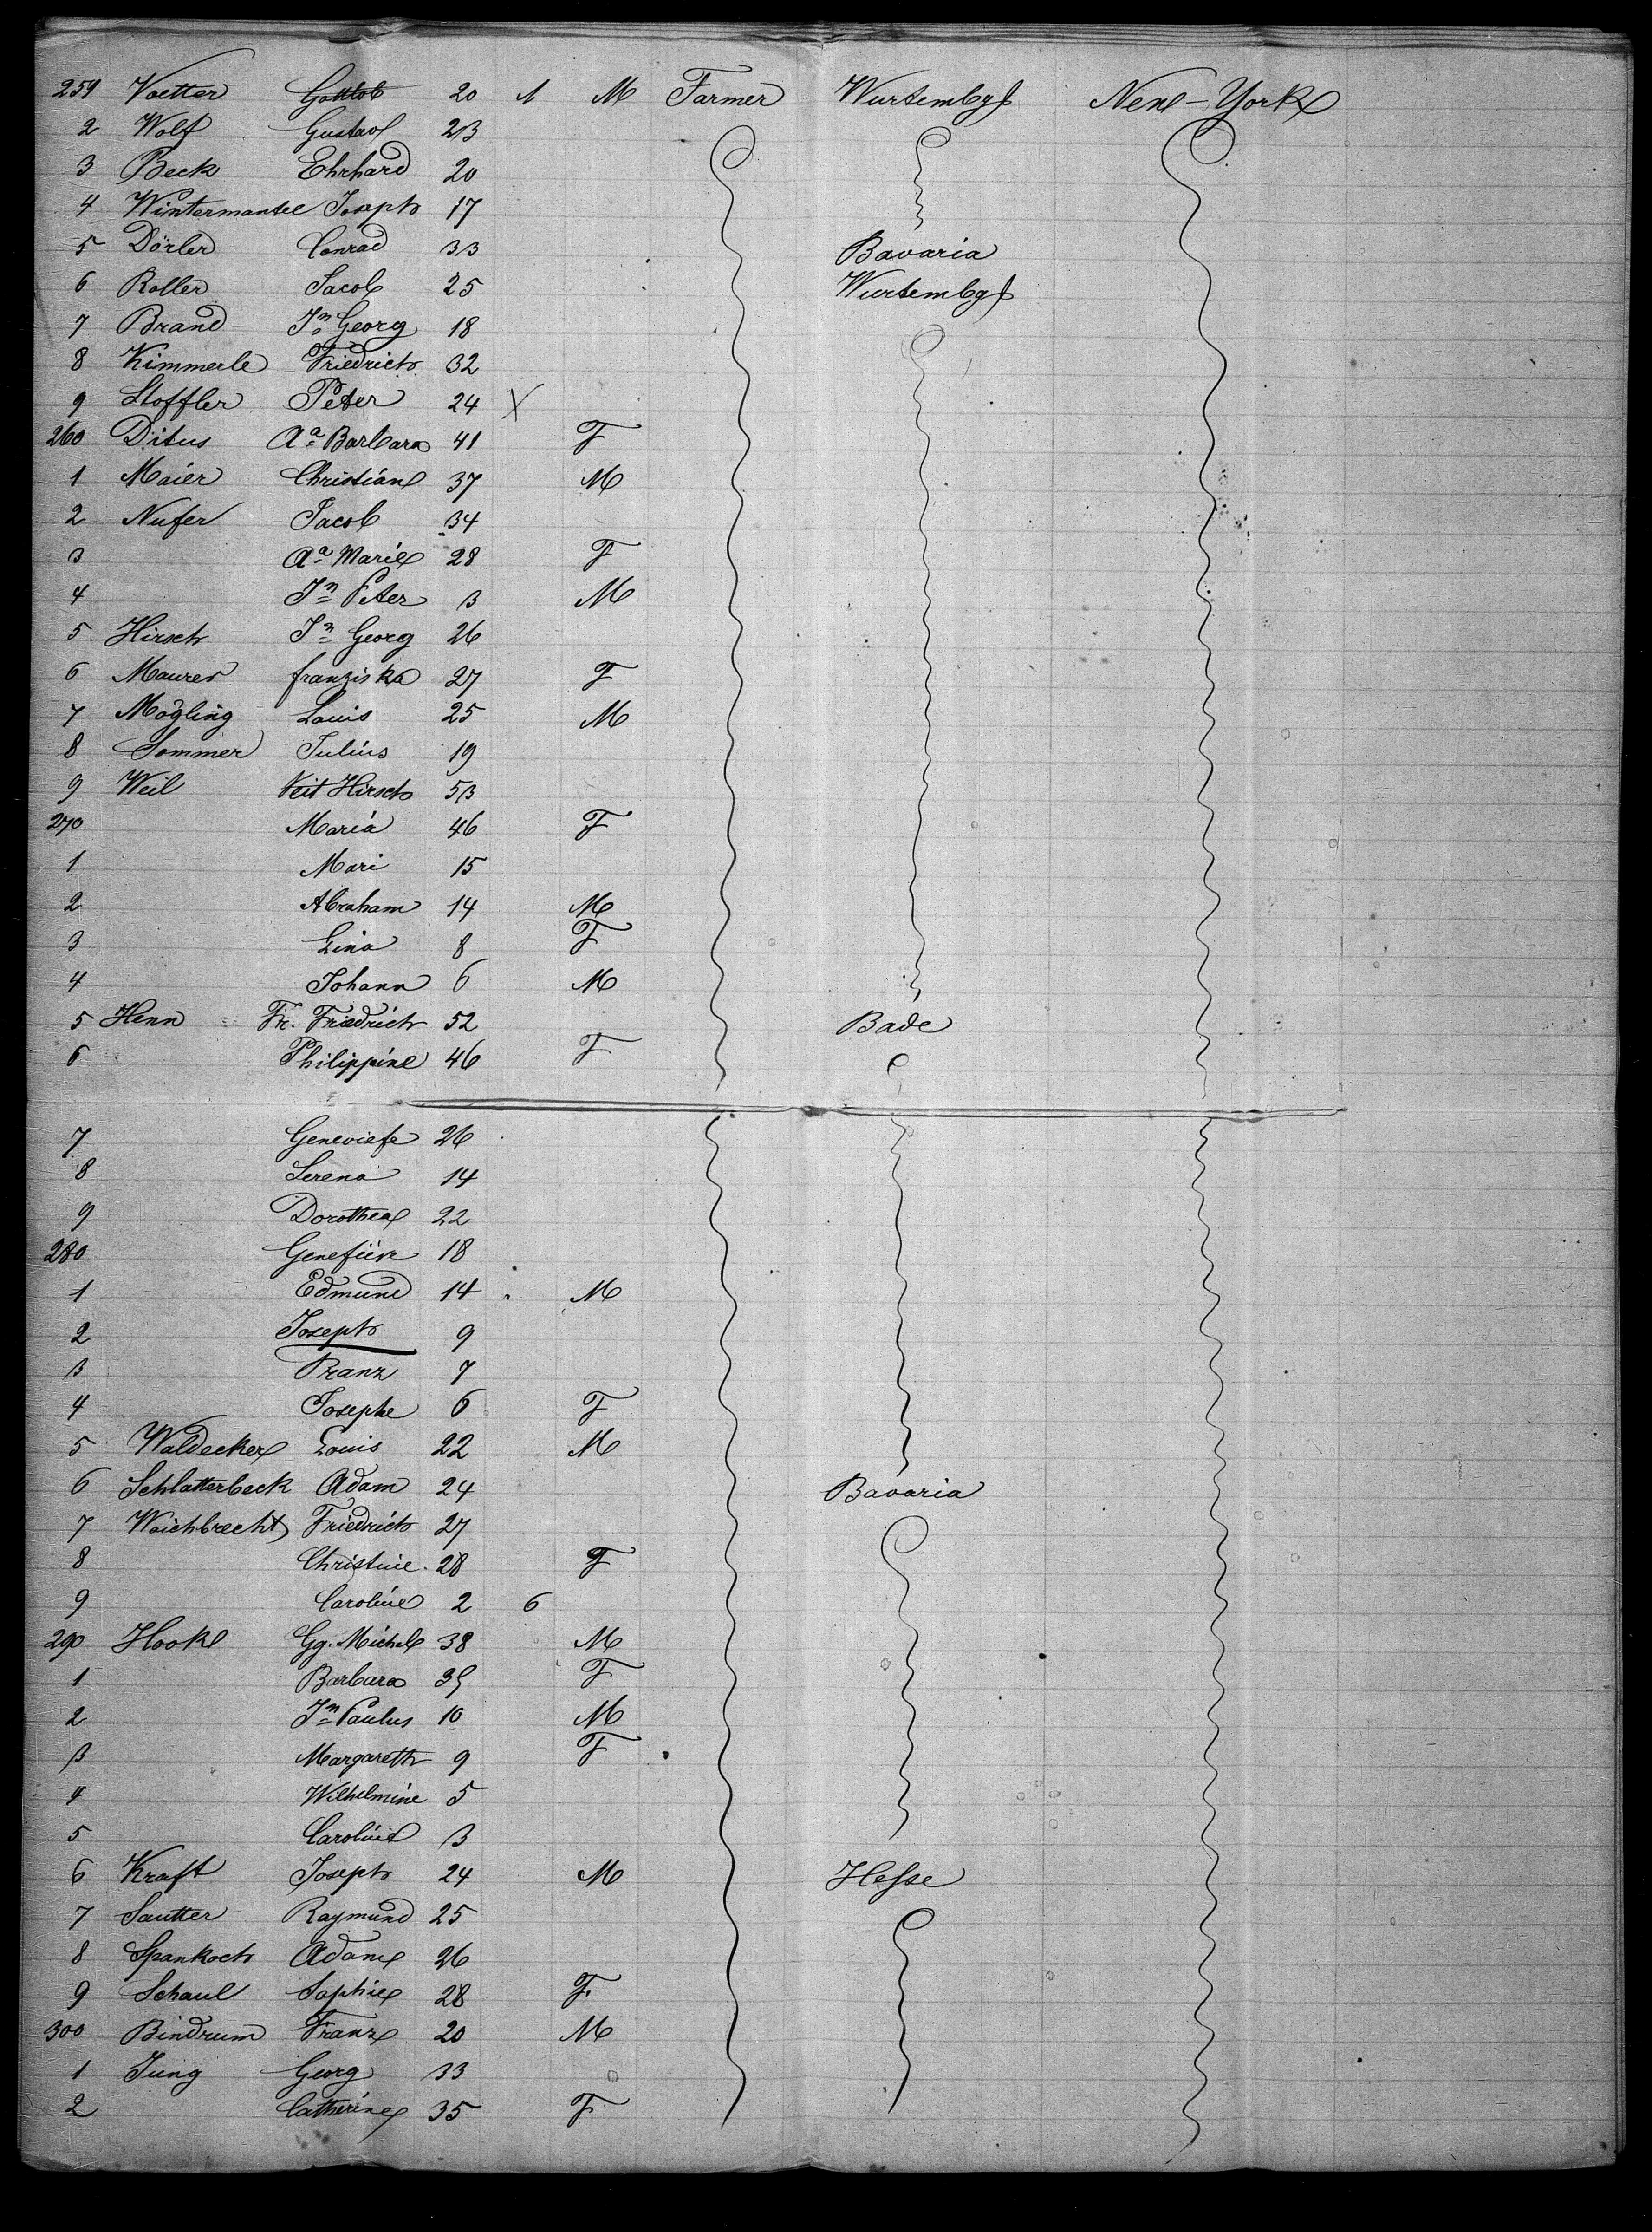 259 Voetter Gottlob 20 1 M Farmer Wurtembg New-York
2 Wolf Gustav 23
3 Beck Ehrhard 20
4 Wintermantel Joseph 17
5 Dörler Conrad 33 Bavaria
6 Roller Jacob 25 Wurtembg
7 Brand Jn Georg 18
8 Kimmerle Friedrich 32
9 Stoffler Peter 24 X
260 Ditus Aa Barbara 41 F
1 Maier Christian 37 M
2 Nufer Jacob 34
3 Aa Marie 28 F
4 Jn Peter 3 M
5 Hirsch Jn Georg 26
6 Maurer franziska 27 F
7 Mögling Louis 25 M
8 Sommer Julius 19
9 Weil Veit Hirsch 53
270 Maria 46 F
1 Mari 15
2 Abraham 14 M
3 Lina 8 F
4 Johann 6 M
5 Henn Fr. Friedrich 52 Bade
6 Philippine 46 F
7 Geneviefe 26
8 Serena 14
9 Dorothea 22
280 Genefiive 18
1 Edmund 14 M
2 Joseph 9
3 Franz 7
4 Josephe 6 F
5 Waldecker Louis 22 M
6 Schlatterbeck Adam 24 Bavaria
7 Waichbrecht Friedrich 27
8 Christine 28 F
9 Caroline 2 6
290 Hooke Gg. Michel 38 M
1 Barbara 35 F
2 Jn Paulus 10 M
3 Margareth 9 F
4 Wilhelmine 5
5 Caroline 3
6 Kraft Joseph 24 M Hesse
7 Sautter Raymund 25
8 Spankoch Adam 26
9 Schaul Sophie 28 F
300 Bindrum Franz 20 M
1 Jung Georg 33
2 Catherine 35 F